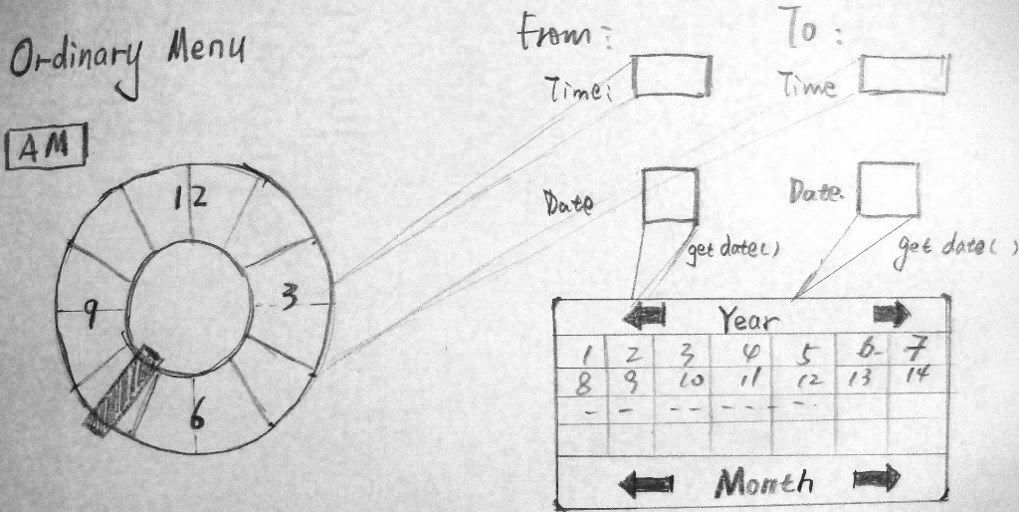 Ordinary Menu
AM
12
3
6
9
From:
Time:
Date
get date()
To:
Time
Date.
get date()
Year
1 2 3 4 5 6 7
8 9 10 11 12 13 14
- - -- -- - -
Month